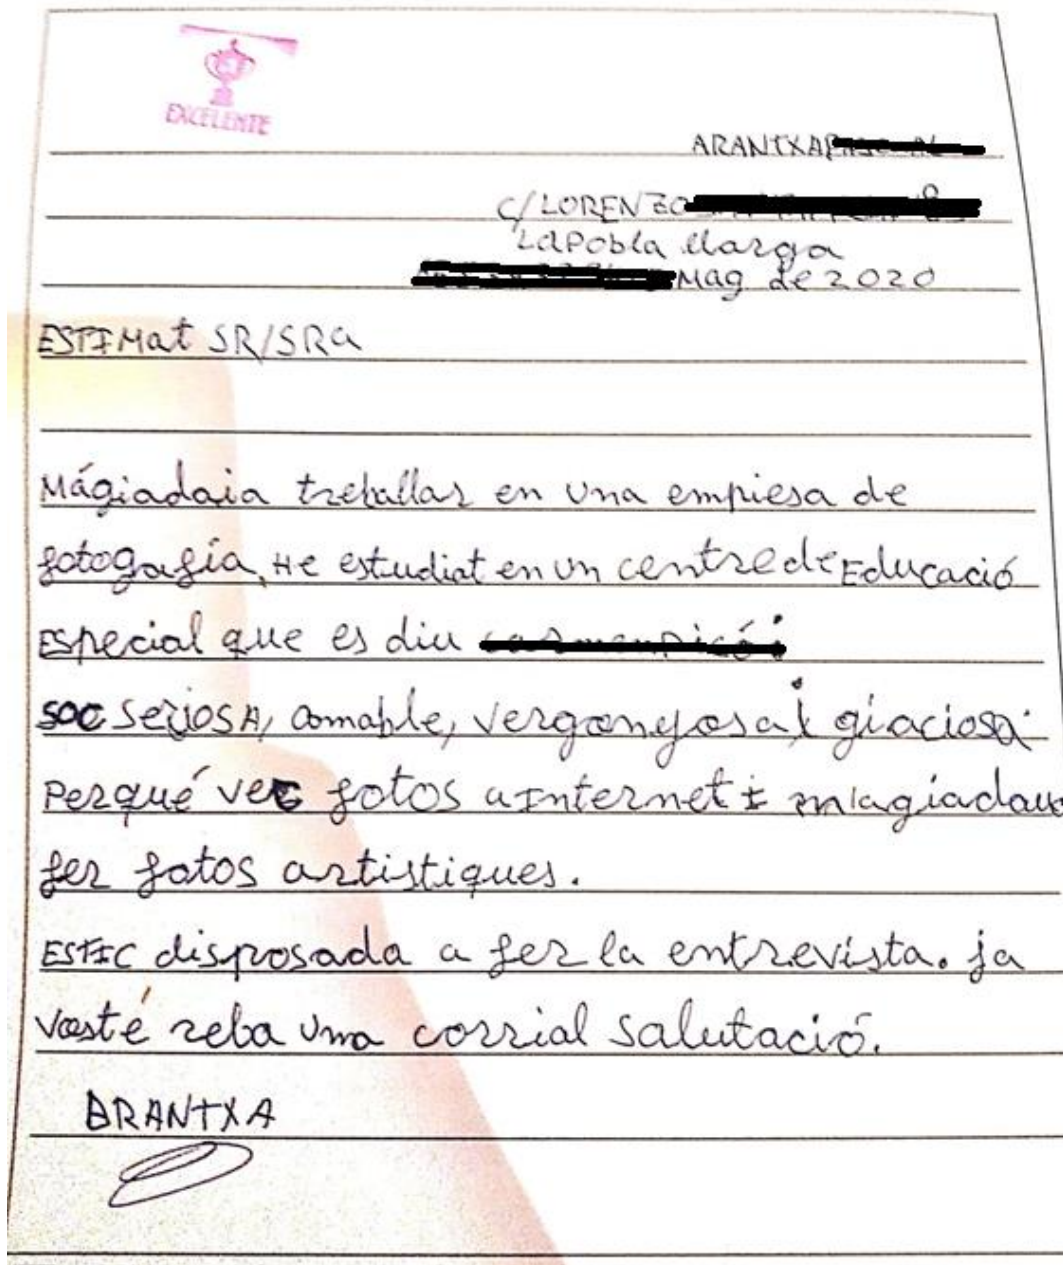 EXCELENTE
ARANTXA
C/ LORENZO
Lapobla llarga
Mag de 2020
ESTIMat SR/SRa
Mágiadaia treballar en una empiesa de
fotogafía, He estudiat en un centre de Educació
Especial que es diu
soc seriosA, amable, vergonyosa i giaciosa.
Perqué vec fotos a Internet i m'agiadaua
fer fotos artistiques.
ESTIC disposada a fer la entrevista. ja
vosté reba una corrial salutació.
ARANTXA